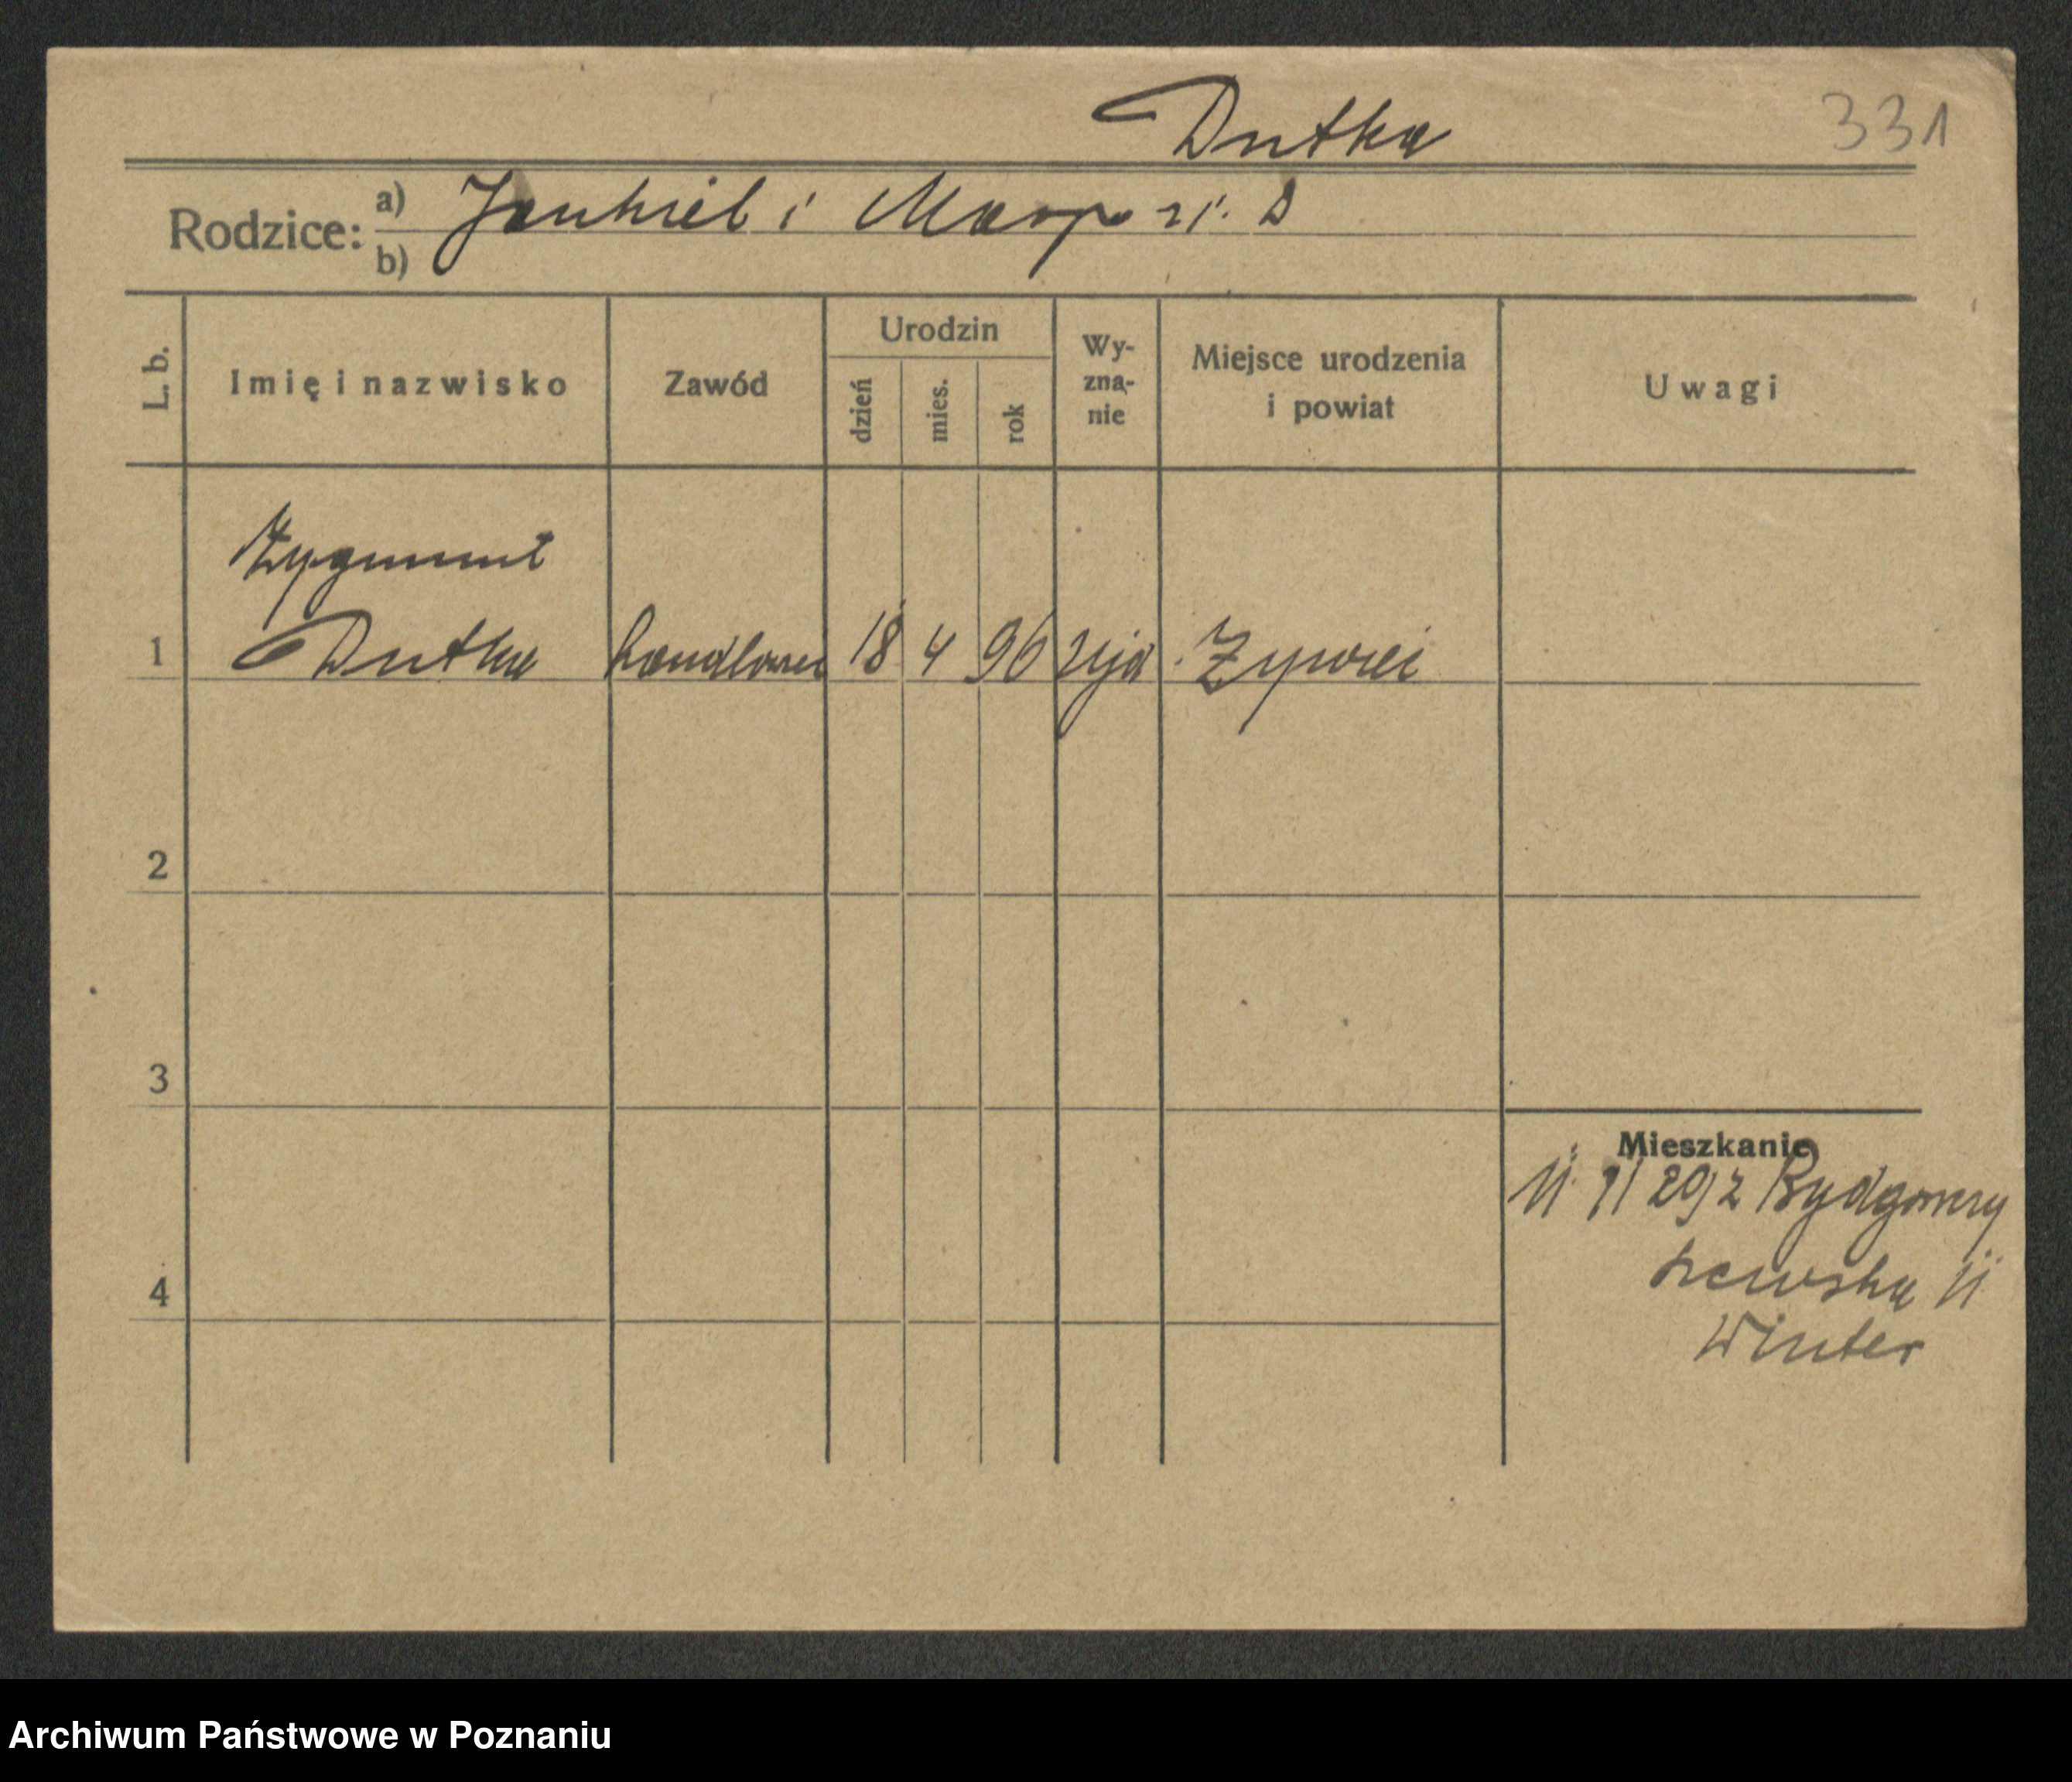 Dutka 331
Rodzice: a) Jankiel i Marya
b)
L. b. Imię i nazwisko Zawód Urodzin dzień mies. rok Wy-zna-nie Miejsce urodzenia i powiat Uwagi
Zygmunt
1 Dutka handlowiec 18 4 96 Żywiec
2
3
Mieszkanie
29 Bydgoszcz
4
Winter
Archiwum Państwowe w Poznaniu